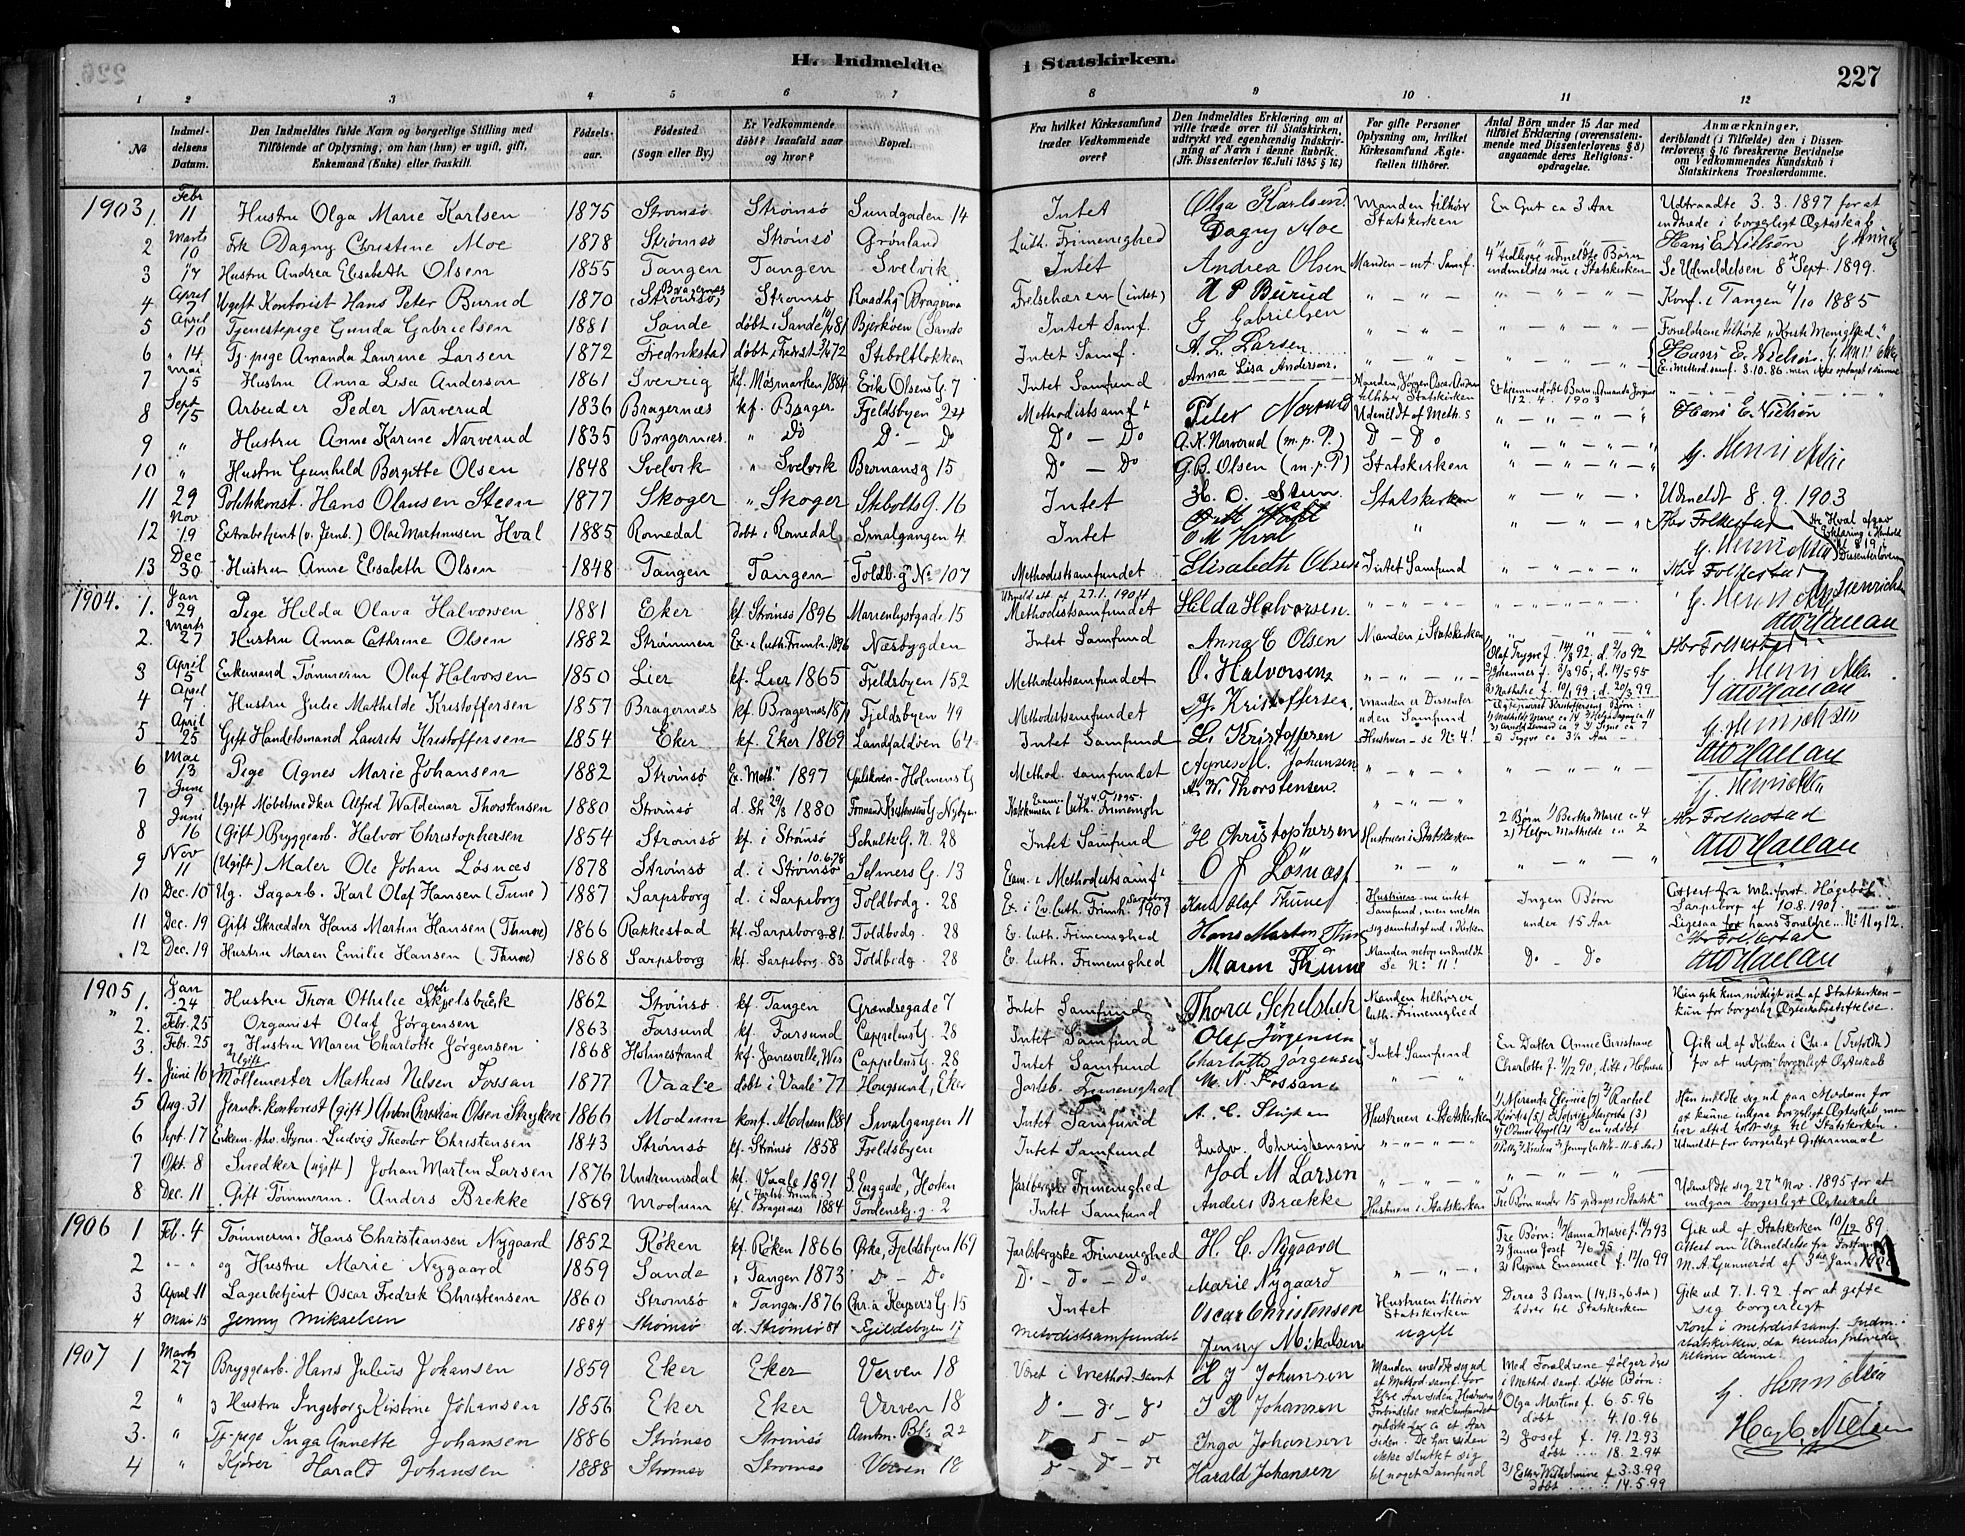 H. Indmeldte
i Statskirken.
227
1 2 3 4 5 6 7
8 9 10 11 12
No
Indmel-
delsens
Datum.
Den Indmeldtes fulde Navn og borgerlige Stilling med
Tilføiende af Oplysning, om han (hun) er ugift, gift,
Enkemand (Enke) eller fraskilt.
Fødsels-
aar.
Fødested
(Sogn eller By.)
Er Vedkommende
døbt? Isaafald naar
og hvor?
Bopæl.
Fra hvilket Kirkesamfund
træder Vedkommende
over?
Den Indmeldtes Erklæring om at
ville træde over til Statskirken,
udtrykt ved egenhændig Indskriv-
ning af Navn i denne Rubrik.
(Jfr. Dissenterlov 16. Juli 1845 § 16.)
For gifte Personer
Oplysning om, hvilket
Kirkesamfund Ægte-
fællen tilhører.
Antal Børn under 15 Aar med
tilføiet Erklæring (overensstem-
mende med Dissenterlovens § 8)
angaaende deres Religions-
opdragelse.
Anmærkninger,
deriblandt (i Tilfælde) den i Dissen-
terlovens § 16 foreskrevne Bevidnelse
om Vedkommendes Kundskab i
Statskirkens Troeslærdomme.
1903, 1. Febr 11 Hustru Olga Marie Karlsen 1875 Strømsø Strømsø Sundgaden 14 Intet Olga Karlsen Manden tilhører Statskirken En Gut ca 3 Aar Udtraadte 3.3.1897 for at indtræde i borgerligt Ægteskab
2 Marts 10 Frk Dagny Christine Moe 1878 Strømsø Strømsø Grønland Luth. Frimenighed Dagny Moe Hans E. Nielsen
3 " 17 Hustru Andrea Elisabeth Olsen 1855 Tangen Tangen Svelvik Intet Andrea Olsen Manden - int. Samf. 4 tidligere udmeldte Børn indmeldes nu i Statskirken Se Udmeldelsen 8de Sept. 1899.
4 April 7 Ugift Kontorist Hans Peter Burud 1870 Bragernæs (Strømsø) Strømsø Raadhg Bragernæs Frelsehæren (intet) H P Burud " - " - " " - " - " Konf. i Tangen 4/10 1885
5 April 10 Tjenestepige Gunda Gabrielsen 1881 Sande døbt i Sande 10/4 81 Bjerkøen (Sande Intet Samf. G Gabrielsen " - " - " " - " - " Forældrene tilhørte "Kristi Menighed"
6 " 14 Tj. pige Amanda Laurine Larsen 1872 Fredrikstad døbt i Fredrst 3/4 72 Stiboltløkken Intet Samf. A. L. Larsen " - " - " Hans E. Nielsen
7 Mai 15 Hustru Anna Lisa Anderson 1861 Sverrig kf. Møsmarken 1884 Erik Olsens G. 7 Intet Samfund Anna Lisa Anderson. Manden, Jørgen Oscar Anderson tilhører Statskirken
8 Sept 15 Arbeider Peder Narverud 1836 Bragernæs kf. Brager. Fjeldsbyen 224 Methodistsamft Peter Narverud Udmeldt af Meth. s " - " - " Hans E. Nielsen
9 " Hustru Anne Karine Narverud 1835 Bragernæs. " Do Do - Do Do - Do A. K. Narverud (m. p. P.) Do - Do " - " - "
10 " Hustru Gunhild Bergitte Olsen 1848 Svelvik " Svelvik Bromansg 15 Do - Do G. B. Olsen (m. p. P) Statskirken " - " - " G. Henriksen
11 29 Politikonst. Hans Olausen Steen 1877 Skoger " Skoger Stibolts G. 16 Intet H. O. Steen Statskirken " - " - " Udmeldt 8.9.1903
12 Nov 19 Extrabetjent (v. Jernb.) Olaf Martinusen Hval 1885 Romedal døbt i Romedal Smalgangen 4. Intet O M Hval " " - " - " Abr Folkestad Hr Hval afgav Erklæring i Henhold til § 19 i Dissenterloven
13 Dec 30 Hustru Anne Elisabeth Olsen 1848 Tangen Tangen Toldb. gd No 107 Methodistsamfundet Elisabeth Olsen Intet Samfund " - " - " G. Henriksen Abr Folkestad
1904. 1. Jan 29 Pige Hilda Olava Halvorsen 1881 Eker kf. Strømsø 1896 Marienlystgade 15 Udmeld. att. af 27.1.1904 Methodistsamfundet Hilda Halvorsen. " - " - " " - " - " G. Henriksen
2. Marts 27 Hustru Anna Cathrine Olsen 1882 Strømmen Ex. i luth. Frimh. 1896 Næsbygden Intet Samfund Anna C Olsen Manden i Statskirken " Otto Hallan Abr Folkestad
3 April 5 Enkemand Tømmerm Oluf Halvorsen 1850 Lier kf. Lier 1865 Fjeldsbyen 152 Methodistsamfundet O. Halvorsen " - " - " 1) Olaf Trygve f. 14/8 92. d. 2/10 92 2) Johannes f. 3/3 95; d. 14/5 95 3) Nathalie f. 10/1 99; d. 20/3 99 G. Henriksen
4 April 7. Hustru Julie Mathilde Kristoffersen 1857 Bragernæs kf. Bragernæs 1871 Fjeldsbyen 49 Methodistsamfundet J. Kristoffersen Manden er Dissenter uden Samfund Ægteparret Kristoffersens Børn: Otto Hallan
5 April 25 Gift Handelsmand Laurits Kristoffersen 1854 Eker kf. Eker 1869 Landfaldøen 64 Intet Samfund L. Kristoffersen Hustruen - se No 4! G. Henriksen
6 Mai 13 Pige Agnes Marie Johansen 1882 Strømsø Ex. Meth. 1897 Gulskoven - Holmens G Method. samfundet Agnes M. Johansen " - " - " " - " - " Otto Hallan
7 Juni 9 Ugift Møbelsnedker Alfred Waldemar Thorstensen 1880 Strømsø d. Str 29/8 1880 Formand Kristiansens G Nybyen luth. Frimenigh A. W. Thorstensen. " - " - " G. Henriksen
8 Juni 16 (Gift) Bryggearb. Halvor Christophersen 1854 Strømsø kf. i Strømsø Schultz G. N. 28 Intet Samfund H Christophersen Hustruen i Statskirken 2 Børn 1) Bertha Marie ca 4 2) Helga Mathilde ca 2 Abr Folkestad
9 Nov 11 (Ugift) Maler Ole Johan Løsnæs 1878 Strømsø d. i Strømsø 10.6.78 Selmers G. 13 Exam. i Methodistsamft O J Løsnæs " - " " - " - " Otto Hallan
10 Dec. 10 Ug. Sagarb. Karl Olaf Hansen (Tune) 1887 Sarpsborg d. i Sarpsborg Toldbodg. 28 Ex. i Ev. luth. Frimh. Sarpsborg 1901 Karl Olaf Thune Hustruen nu intet Samfund, men melder sig samtidigt ind i Kirken Ingen Børn under 15 Aar Attest fra Sarpsborg af 10.8.1901.
11 Dec. 19 Gift Skrædder Hans Martin Hansen (Thune) 1866 Rakkestad kf. Sarpsborg 81 Toldbodg. 28 Ev. luth. Frimenighed Hans Martin Thune Ligesaa for hans Forældre No 11 og 12.
12 Dec. 19 Hustru Maren Emilie Hansen (Thune) 1868 Sarpsborg kf. Sarpsborg 83 Toldbodg. 28 Ev. luth. Frimenighed Maren Thune Manden netop indmeldt Se No 11! Do - Do Abr Folkestad Otto Hallan
1905 1. Jan 24 Hustru Thora Othilie Schelsbæk 1862 Strømsø kf. Tangen Grændsegade 7 Intet Samfund Thora Schelsbek Manden tilhører luth. Frimenighed Hun gik kun nødigt ud af Statskirken - kun for borgerlig Ægteskabsstiftelse.
2. Febr. 25 Organist Olaf Jørgensen 1863 Farsund kf. Farsund Cappelens G. 28 Intet Samfund Olaf Jørgensen
3. Febr. 25 og Hustru Maren Charlotte Jørgensen 1868 Holmestrand kf. Janesville, Wis Cappelens G. 28 Intet Samfund Charlotte Jørgensen Intet Samfund En Datter Annie Christiane Charlotte f. 1/12 90, døbt i Holmestr Gik ud af Kirken i Chr.a (Trefoldh) for at indgaa borgerligt Ægteskab
4. Juni 16 Ugift Møllemester Mathias Nilsen Fossan 1877 Vaale døbt i Vaale 77 Hougsund, Eker Jarlsb. Frimenighed M. N. Fossan " - "
5 Aug. 31 Jernb. kontorist (gift) Anton Christian Olsen Stryken 1866 Modum konf. Modum 1881 Smalgangen 11 Intet Samfund A. C. Stryken Hustruen i Statskirken Han meldte sig ud paa Modum for at kunne indgaa borgerligt Ægteskab, men har altid holdt sig til Statskirken.
6 Sept. 17 Enkem. fhv. Styrm. Ludvig Theodor Christensen 1843 Strømsø kf. Strømsø 1858 Fjeldsbyen Intet Samfund Ludv. Christensen " - " - " Udmeldt for borgerligt Giftermaal
7 Okt. 8 Snedker (ugift) Johan Martin Larsen 1876 Undrumsdal kf. Vaale 1891 (Jarlsb. Frimh.) S. Enggade, Horten Jarlsbergske Frimenighed Joh M Larsen " - " - " " - " - "
8 Dec. 11 Gift Tømmerm. Anders Brekke 1869 Modum kf. Bragernæs 1884 Tordenskj. g. 2 Intet Samfund Anders Brække Hustruen i Statskirken Tre Børn under 15 opdrages i Statsk. Udmeldte sig 27de Nov. 1895 for at indgaa borgerligt Ægteskab
1906 1 Feb. 4 Tømmerm. Hans Christiansen Nygaard 1852 Røken kf. Røken 1866 Ørka, Fjeldsbyen 169 Jarlsbergske Frimenighed H. C. Nygaard Tre Børn: 1) Hanna Marie f. 14/7 93 2) James Josef 2/6 95 3) Ragnar Emanuel f. 12/10 99 Gik ud af Statskirken 10/12 89. Attest om Udmeldelse fra Forstander M. A. Gunnerød af 3die Jan. 1906
2 " - " og Hustru Marie Nygaard 1859 Sande " Tangen 1873 Do - Do Do - Do - Do Marie Nygaard " - " - "
3 April 11 Lagerbetjent Oscar Fredrik Christensen 1860 Strømsø " Tangen 1876 Chr.a Keysers G. 15 Intet Oscar Christensen Hustruen tilhører Statskirken Deres 3 Barn (14, 13, 6 Aar) hører til Statskirken Gik ud 7.1.92. for at gifte sig borgerligt
4 Mai 15 Jenny Mikaelsen 1884 Strømsø d. Strømsø 84 Fjeldsbyen 17 Metodistsamfundet Jenny Mikalsen ugift Konf i metodistsamf. Indm. i statskirken, da hendes forlovede tilhører denne.
1907 1 Marts 27 Bryggearb. Hans Julius Johansen 1859 Eker Eker Verven 18 Været i Method. samf H J Johansen Manden meldte sig ud af Method. samf. for flere Aar siden. Hustruens Forbindelse med Samfundet ophørte for et Aar siden. De har siden ikke sluttet sig til noget Samfund Med Forældrene følger dres i Method. samf. døbte Børn: G. Henriksen
2 " og Hustru Ingeborg Kirstine Johansen 1856 Eker Eker Verven 18 Do - do - do I K Johansen 1) Olga Martine f. 6.5.96 døbt 4.10.96
3. " Tj. pige Inga Annette Johansen 1886 Strømsø Strømsø Amtm. Bl.s 22 do - do - do Inga Johansen 2) Josef f. 19.12.93 døbt 18.2.94
4 " Kjører Harald Johansen 1888 Strømsø Strømsø Verven 18 do - do - do Harald Johansen 3) Esther Wilhelmine f 3.3.99 døbt 14.5.99